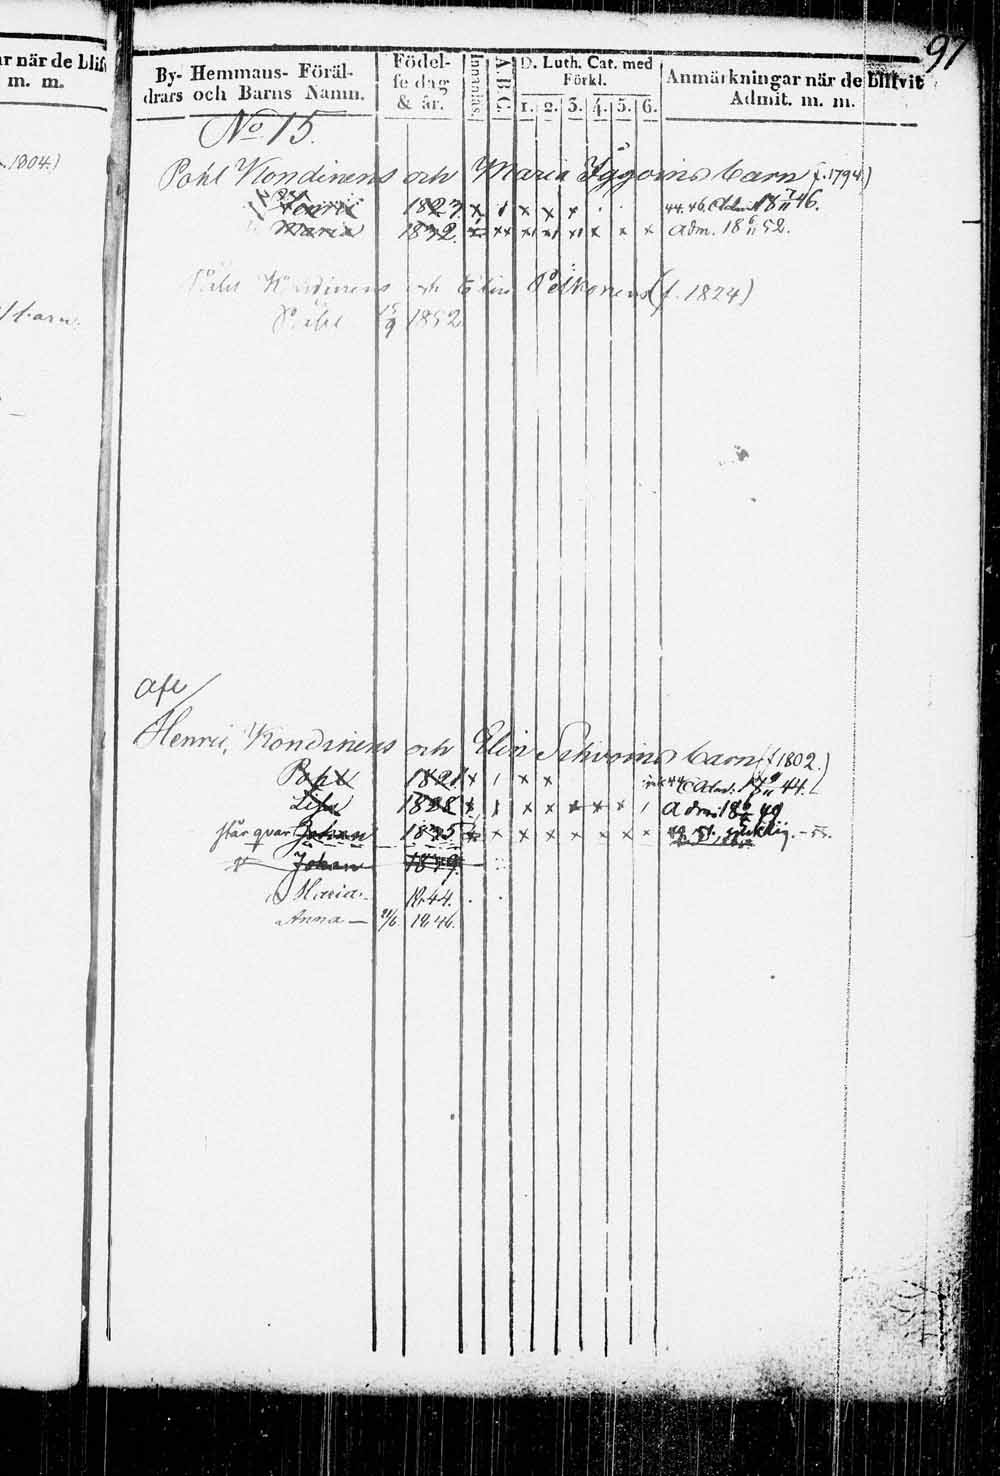 97
ar när de blif
m. m.
By- Hemmans- Föräl-
drars och Barns Namn.
Födel-
se dag
& år.
Innanläs.
A.B.C.
D. Luth. Cat. med
Förkl.
1. 2. 3. 4. 5. 6.
Anmärkningar när de blifvit
Admit. m. m.
No 15.
1804.)
Pohl Kondinens och Maria Iggoins barn f. 1794.)
Henric 1827. x x x x 44. 46. Adm. 18 7/11 46.
Maria 1832. x xx x x x x x x Adm. 18 6/11 52.
Påhl Kondinens och Elin Pelkonens (f. 1824)
Påhl 15/9 1852
barn.
Afl
Henric Kondinens och Elin Sihvoins barn (f 1802.)
Pohl 1821 x x x 44.
Lisa 1828 x x x x x x x Adm. 18 49
står qvar Johan 1835 x x x x x x x x 49. 51. sjuklig. - 55.
Johan 1839.
Maria. 1844.
Anna - 21/6 1846.